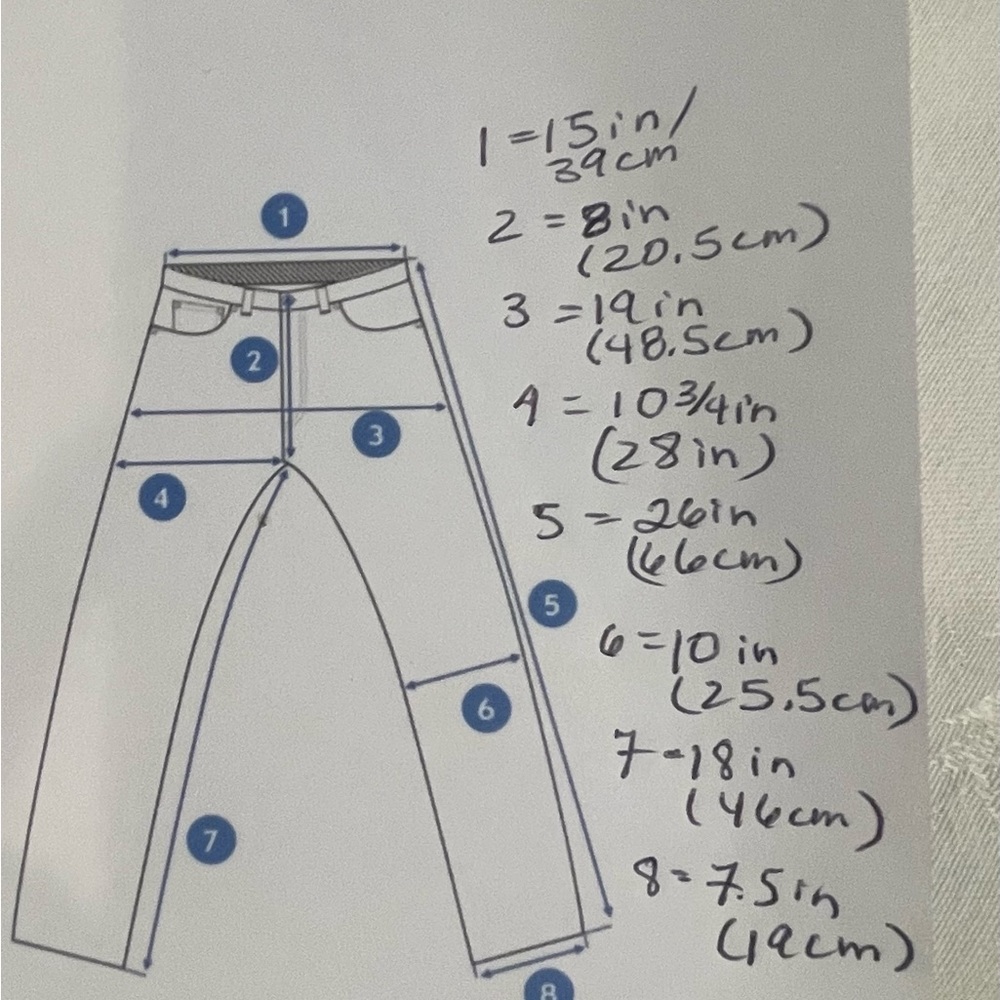 1 = 15in/
39cm
2 = 8in
(20.5cm)
3 = 19in
(48.5cm)
4 = 10 3/4in
(28in)
5 = 26in
(66cm)
6 = 10 in
(25.5cm)
7 = 18in
(46cm)
8 = 7.5in
(19cm)
1
2
3
4
5
6
7
8